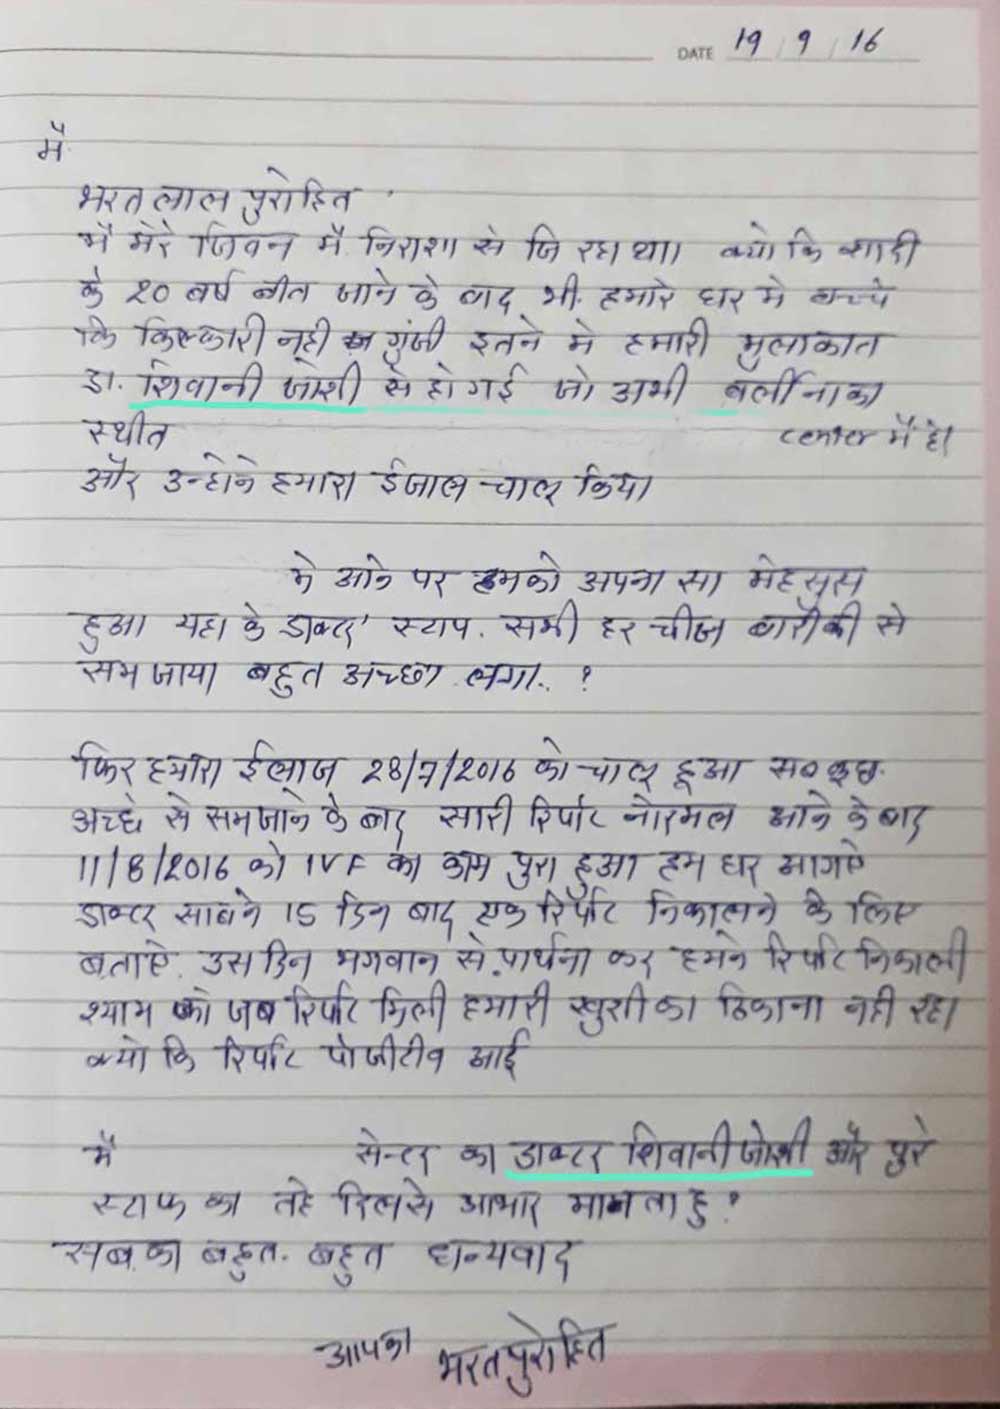 DATE 19/9/16
मै
भरतलाल पुरोहित
मै मेरे जिवन मै निराशा से जि रहा था। क्यो कि शादी
के 20 वर्ष बीत जाने के बाद भी हमारे घर मे बच्चे
कि किलकारी नही गुंजी इतने मे हमारी मुलाकात
डा. शिवानी जोशी से हो गई जो अभी वर्ली नाका
स्थीत center मै है।
और उन्होने हमारा ईजाल चालू किया
मे आने पर हमको अपना सा मेहसुस
हुआ यहा के डाक्टर स्टाप. सभी हर चीज बारीकी से
समजाया बहुत अच्छा लगा.. ?
फिर हमारा ईलाज 28/7/2016 को चालू हूआ सब कुछ
अच्छे से समजाने के बाद सारी रिर्पाट नोरमल आने के बाद
11/8/2016 को IVF का काम पुरा हुआ हम घर आगऐ
डाक्टर साबने 15 दिन बाद एक रिर्पाट निकालने के लिए
बताऐ. उस दिन भगवान से प्रार्थना कर हमने रिर्पाट निकाली
श्याम को जब रिर्पाट मिली हमारी खुशी का ठिकाना नही रहा
क्यो कि रिर्पाट पोजीटीव आई
मै सेन्टर का डाक्टर शिवानी जोशी और पुरे
स्टाफ का तहे दिलसे आभार मानता हु ?
सब का बहुत. बहुत धन्यवाद
आपका भरत पुरोहित